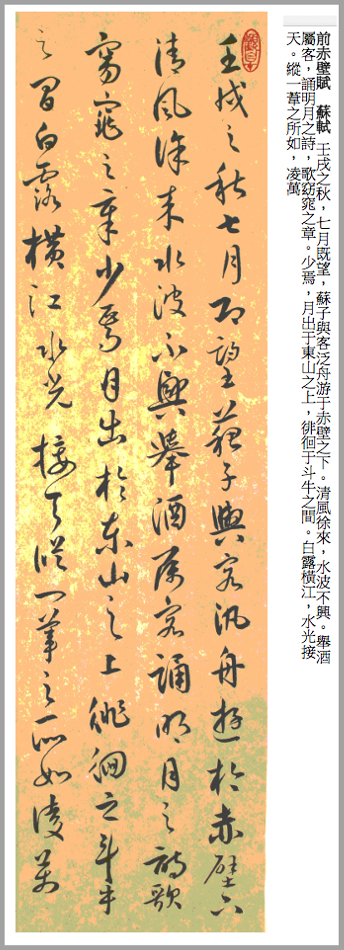 前赤壁賦　蘇軾　壬戌之秋，七月既望，蘇子與客泛舟游于赤壁之下。清風徐來，水波不興。舉酒
屬客，誦明月之詩，歌窈窕之章。少焉，月出于東山之上，徘徊于斗牛之間。白露橫江，水光接
天。縱一葦之所如，凌萬
壬戌之秋七月既望蘇子與客汎舟遊於赤壁下
清風徐來水波不興舉酒屬客誦明月之詩歌
窈窕之章少焉月出於東山之上徘徊之斗牛
之間白露橫江水光接天縱一葦之所如凌萬